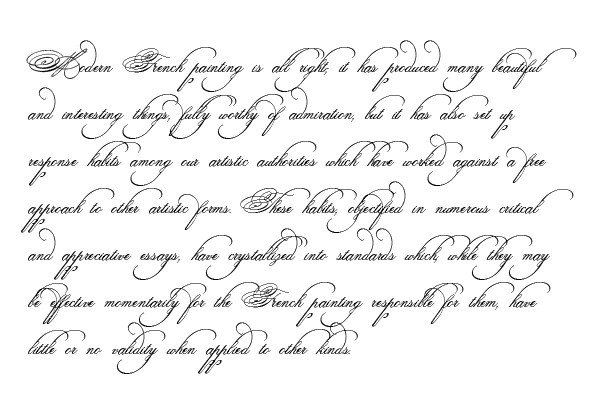 Modern French painting is all right, it has produced many beautiful
and interesting things, fully worthy of admiration, but it has also set up
response habits among our artistic authorities which have worked against a free
approach to other artistic forms. These habits, objectified in numerous critical
and appreciative essays, have crystallized into standards which, while they may
be effective momentarily for the French painting responsible for them, have
little or no validity when applied to other kinds.